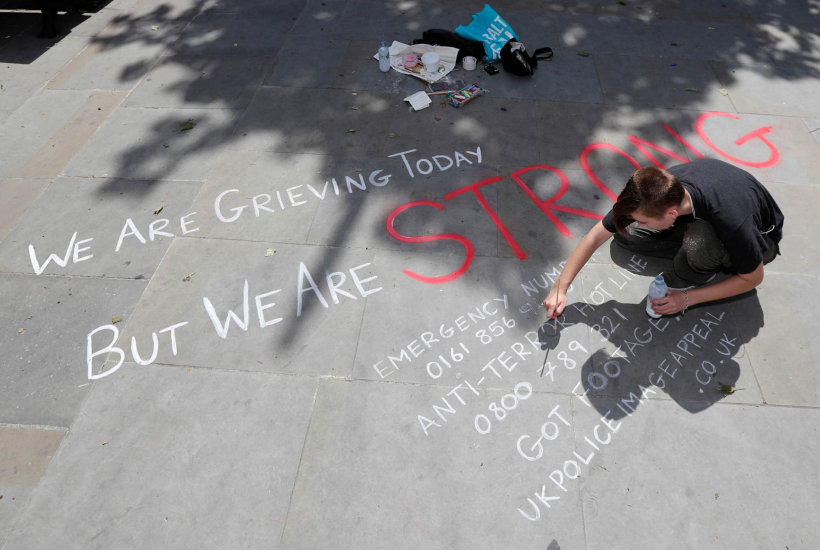 We Are Grieving Today
But We Are STRONG
EMERGENCY
0161 856
ANTI-TERROR HOTLINE
0800 789 321
GOT FOOTAGE
UKPOLICEIMAGEAPPEAL
.CO.UK